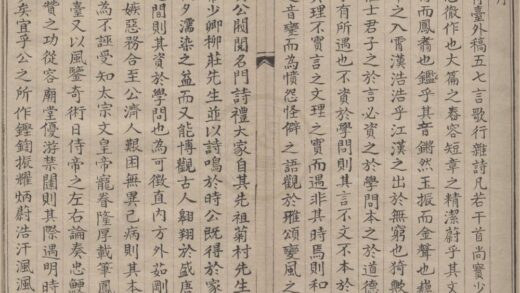 符臺外稿五七言歌行雜詩凡若干首尚寶少
忠徹作也大篇之舂容短章之精潔蔚乎其文
而鳳翥也鏗乎其音鏘然玉振而金聲也飄
之入霄漢浩浩乎江漢之出於無窮也猗歟
士君子之於言必資之於學問本之於道德
有所遇也不資於學問則其言不文不本於
外理不貴言之文理之實而遇非其時焉則和
之音變而為憤怨怪僻之語觀於雅頌變風之
公閥閱名門詩禮大家自其先祖菊村先生
少卿柳莊先生並以詩鳴於時公既得於家
夕濡染之益而又能博觀古人翱翔於盛唐
間則其資於學問也為可徵直內方外茹剛
嫉惡務合至公濟人艱困無異己病則其本
為不誣受知太宗文皇帝寵眷隆厚載筆鳳
臺又以風鑒奇術日侍帝之左右論奏忠鯁
贊之功從容廟堂優游禁闥則其際遇明時
矣宜乎公之所作鏗鍧振耀炳蔚浩汗渢渢